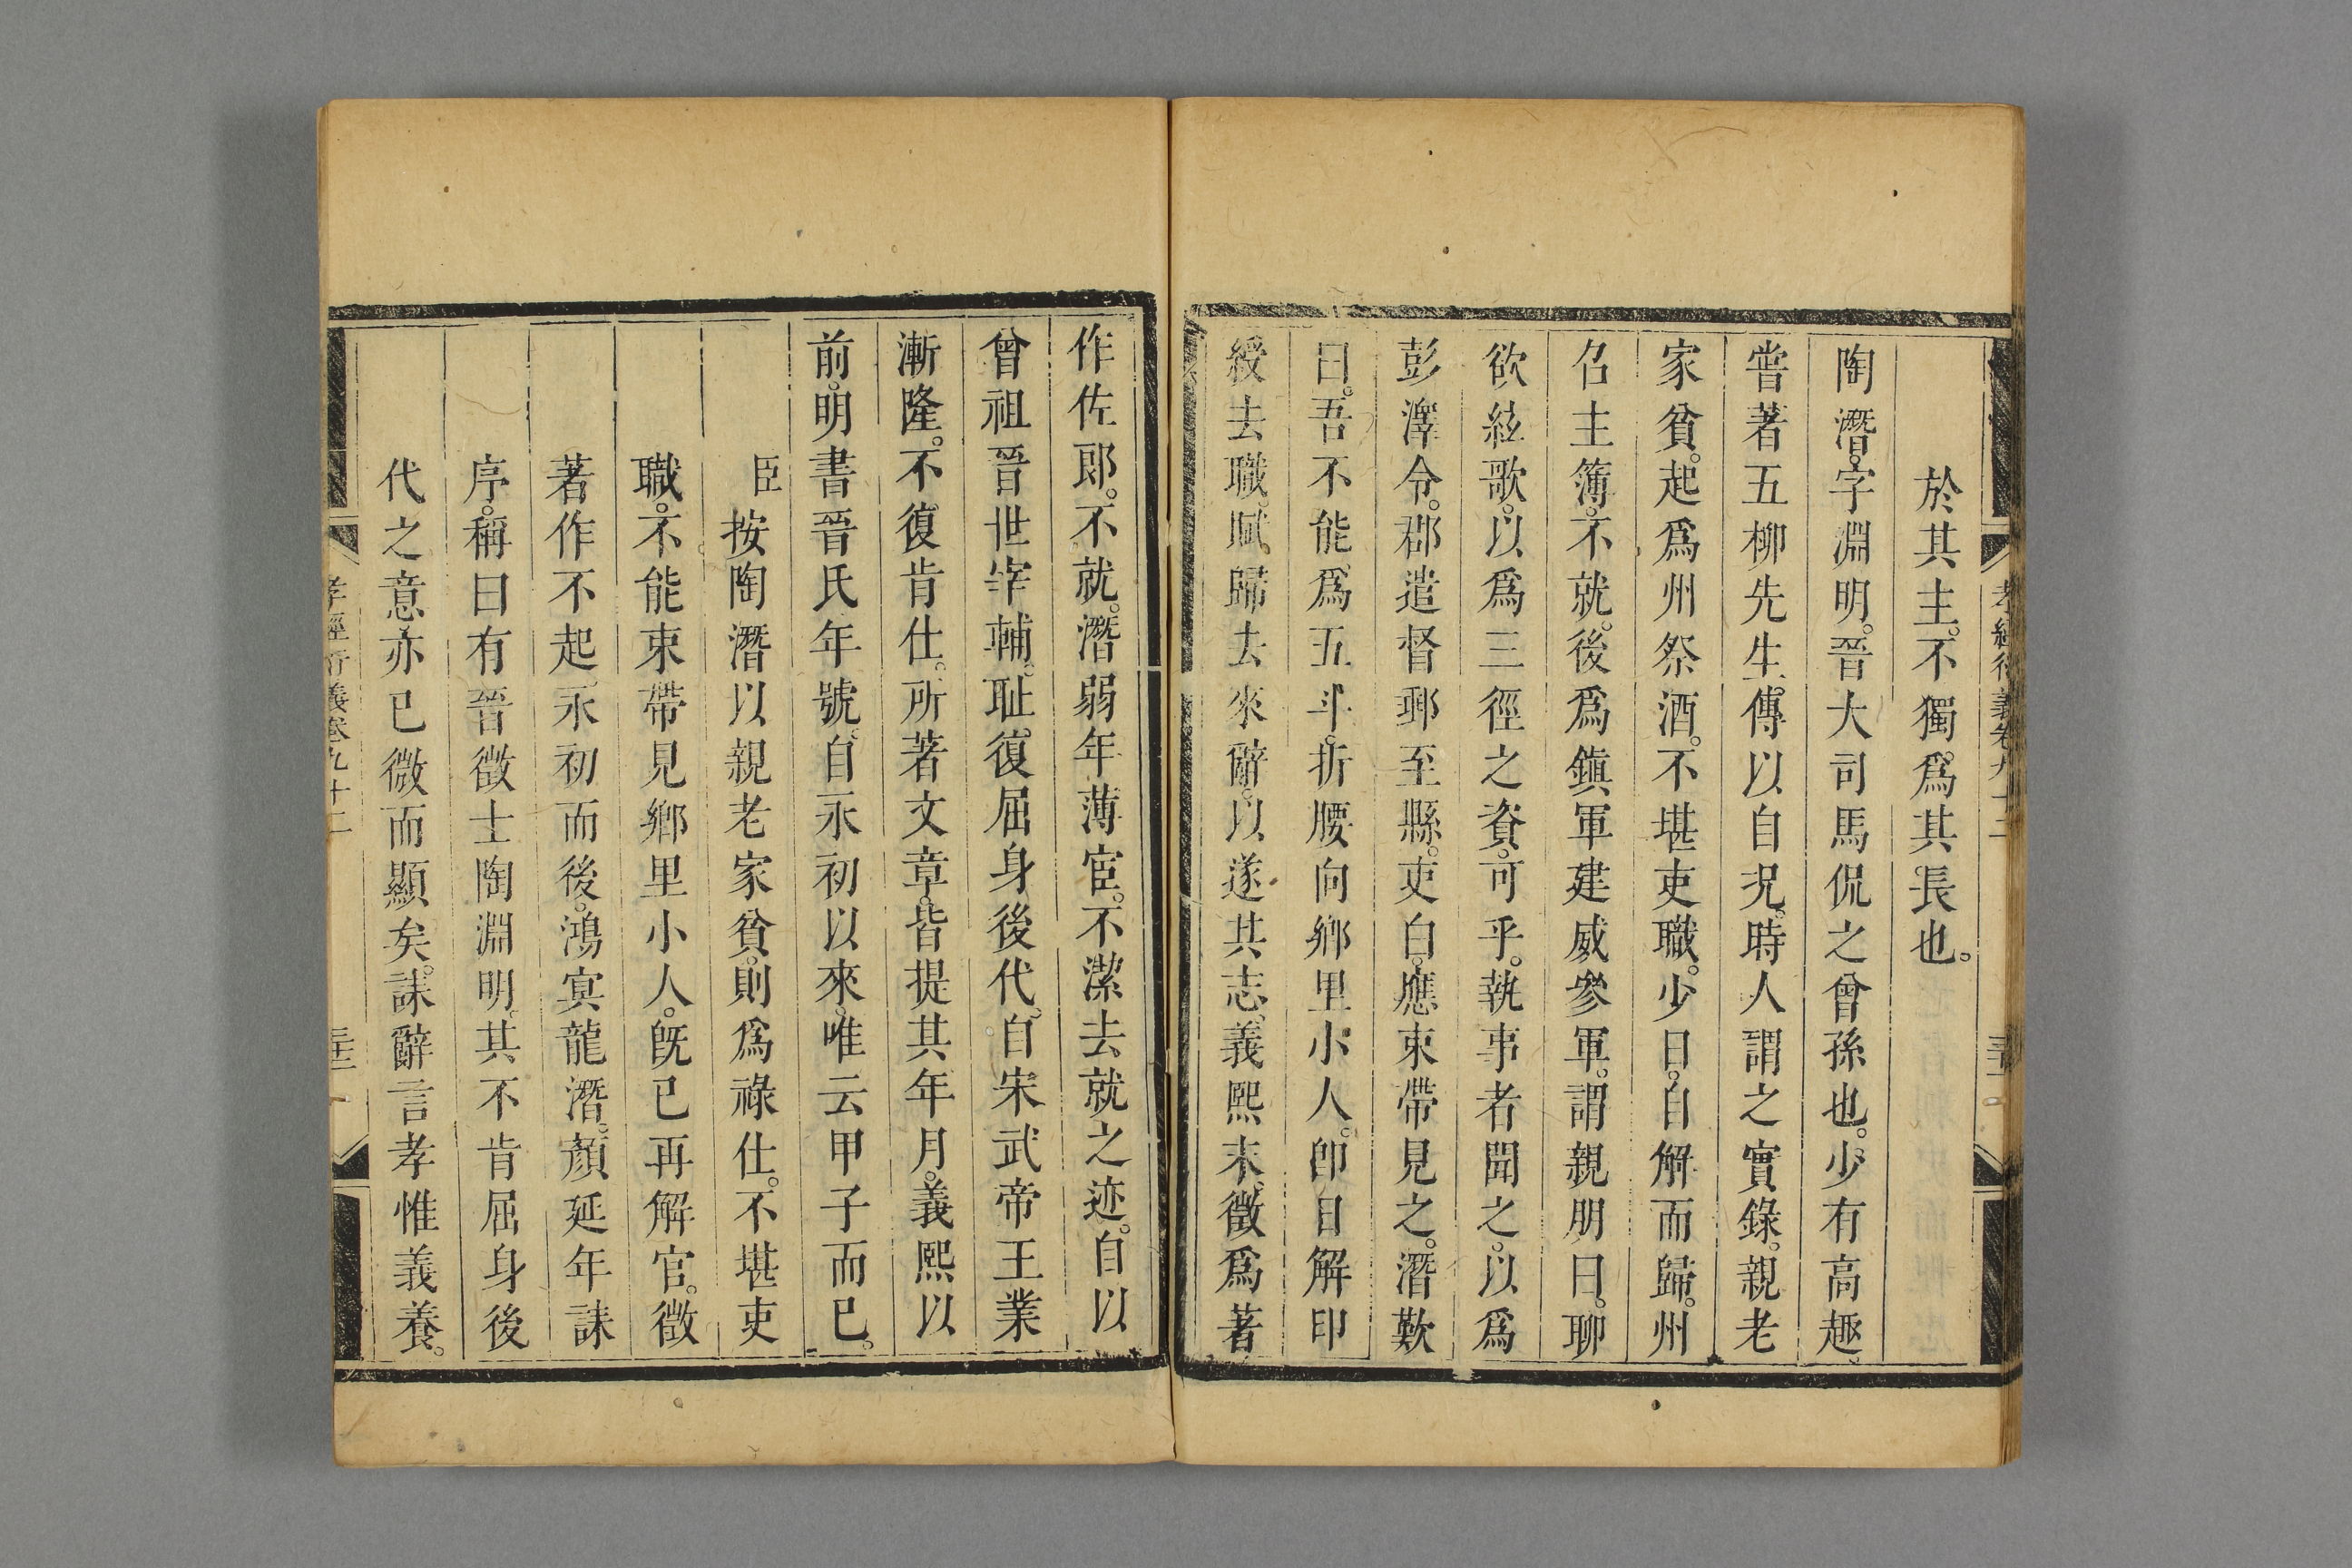 於其主。不獨爲其長也。
陶潛。字淵明。晉大司馬侃之曾孫也。少有高趣。
嘗著五柳先生傳以自況。時人謂之實錄。親老
家貧。起爲州祭酒。不堪吏職。少日。自解而歸。州
召主簿。不就。後爲鎭軍建威參軍。謂親朋曰。聊
欲絃歌。以爲三徑之資。可乎。執事者聞之。以爲
彭澤令。郡遣督郵至縣。吏白。應束帶見之。潛歎
曰。吾不能爲五斗。折腰向鄉里小人。卽日解印
綬去職。賦歸去來辭。以遂其志。義熙末。徵爲著
作佐郞。不就。潛弱年薄宦。不潔去就之迹。自以
曾祖晉世宰輔。恥復屈身後代。自宋武帝王業
漸隆。不復肯仕。所著文章。皆提其年月。義熙以
前。明書晉氏年號。自永初以來。唯云甲子而已。
臣按陶潛以親老家貧。則爲祿仕。不堪吏
職。不能束帶見鄉里小人。旣已再解官。徵
著作不起。永初而後。鴻寞龍潛。顏延年誄
序。稱曰有晉徵士陶淵明。其不肯屈身後
代之意。亦已微而顯矣。誄辭言孝惟義養。
孝經衍義卷九十二